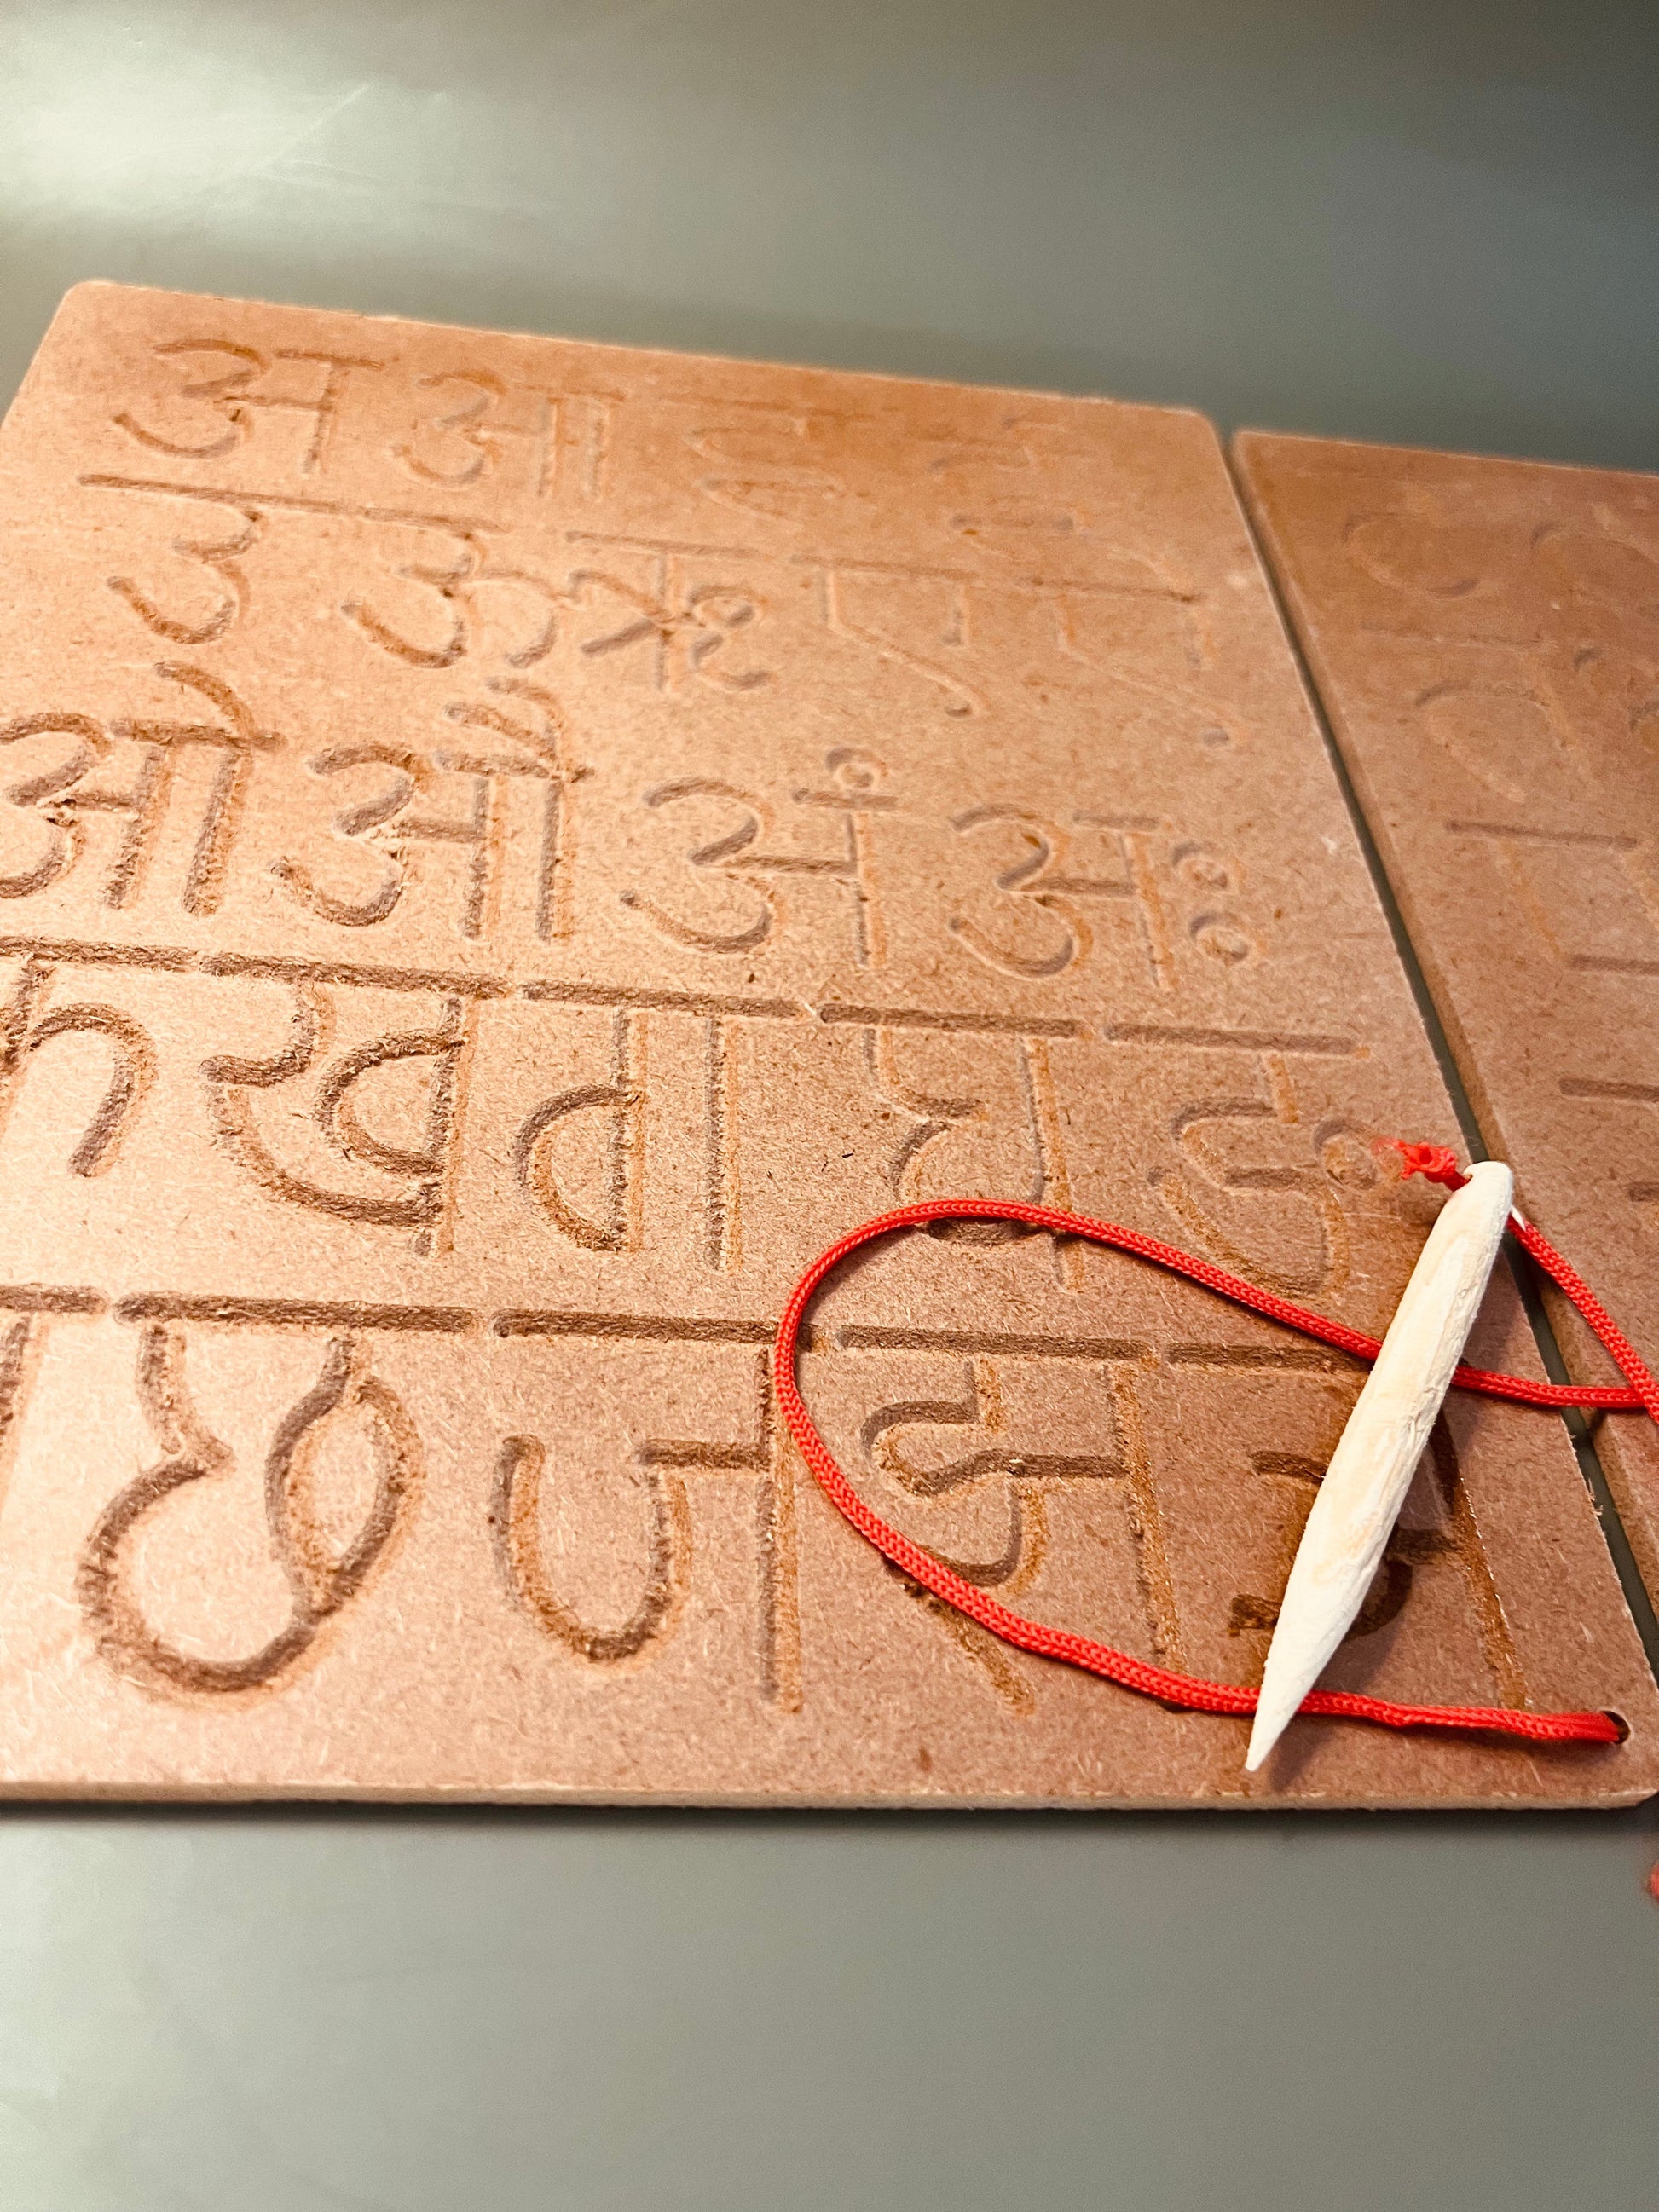 अ आ इ ई
उ ऊ ऋ ए ऐ
ओ औ अं अः
क ख ग घ ङ
छ ज झ ञ